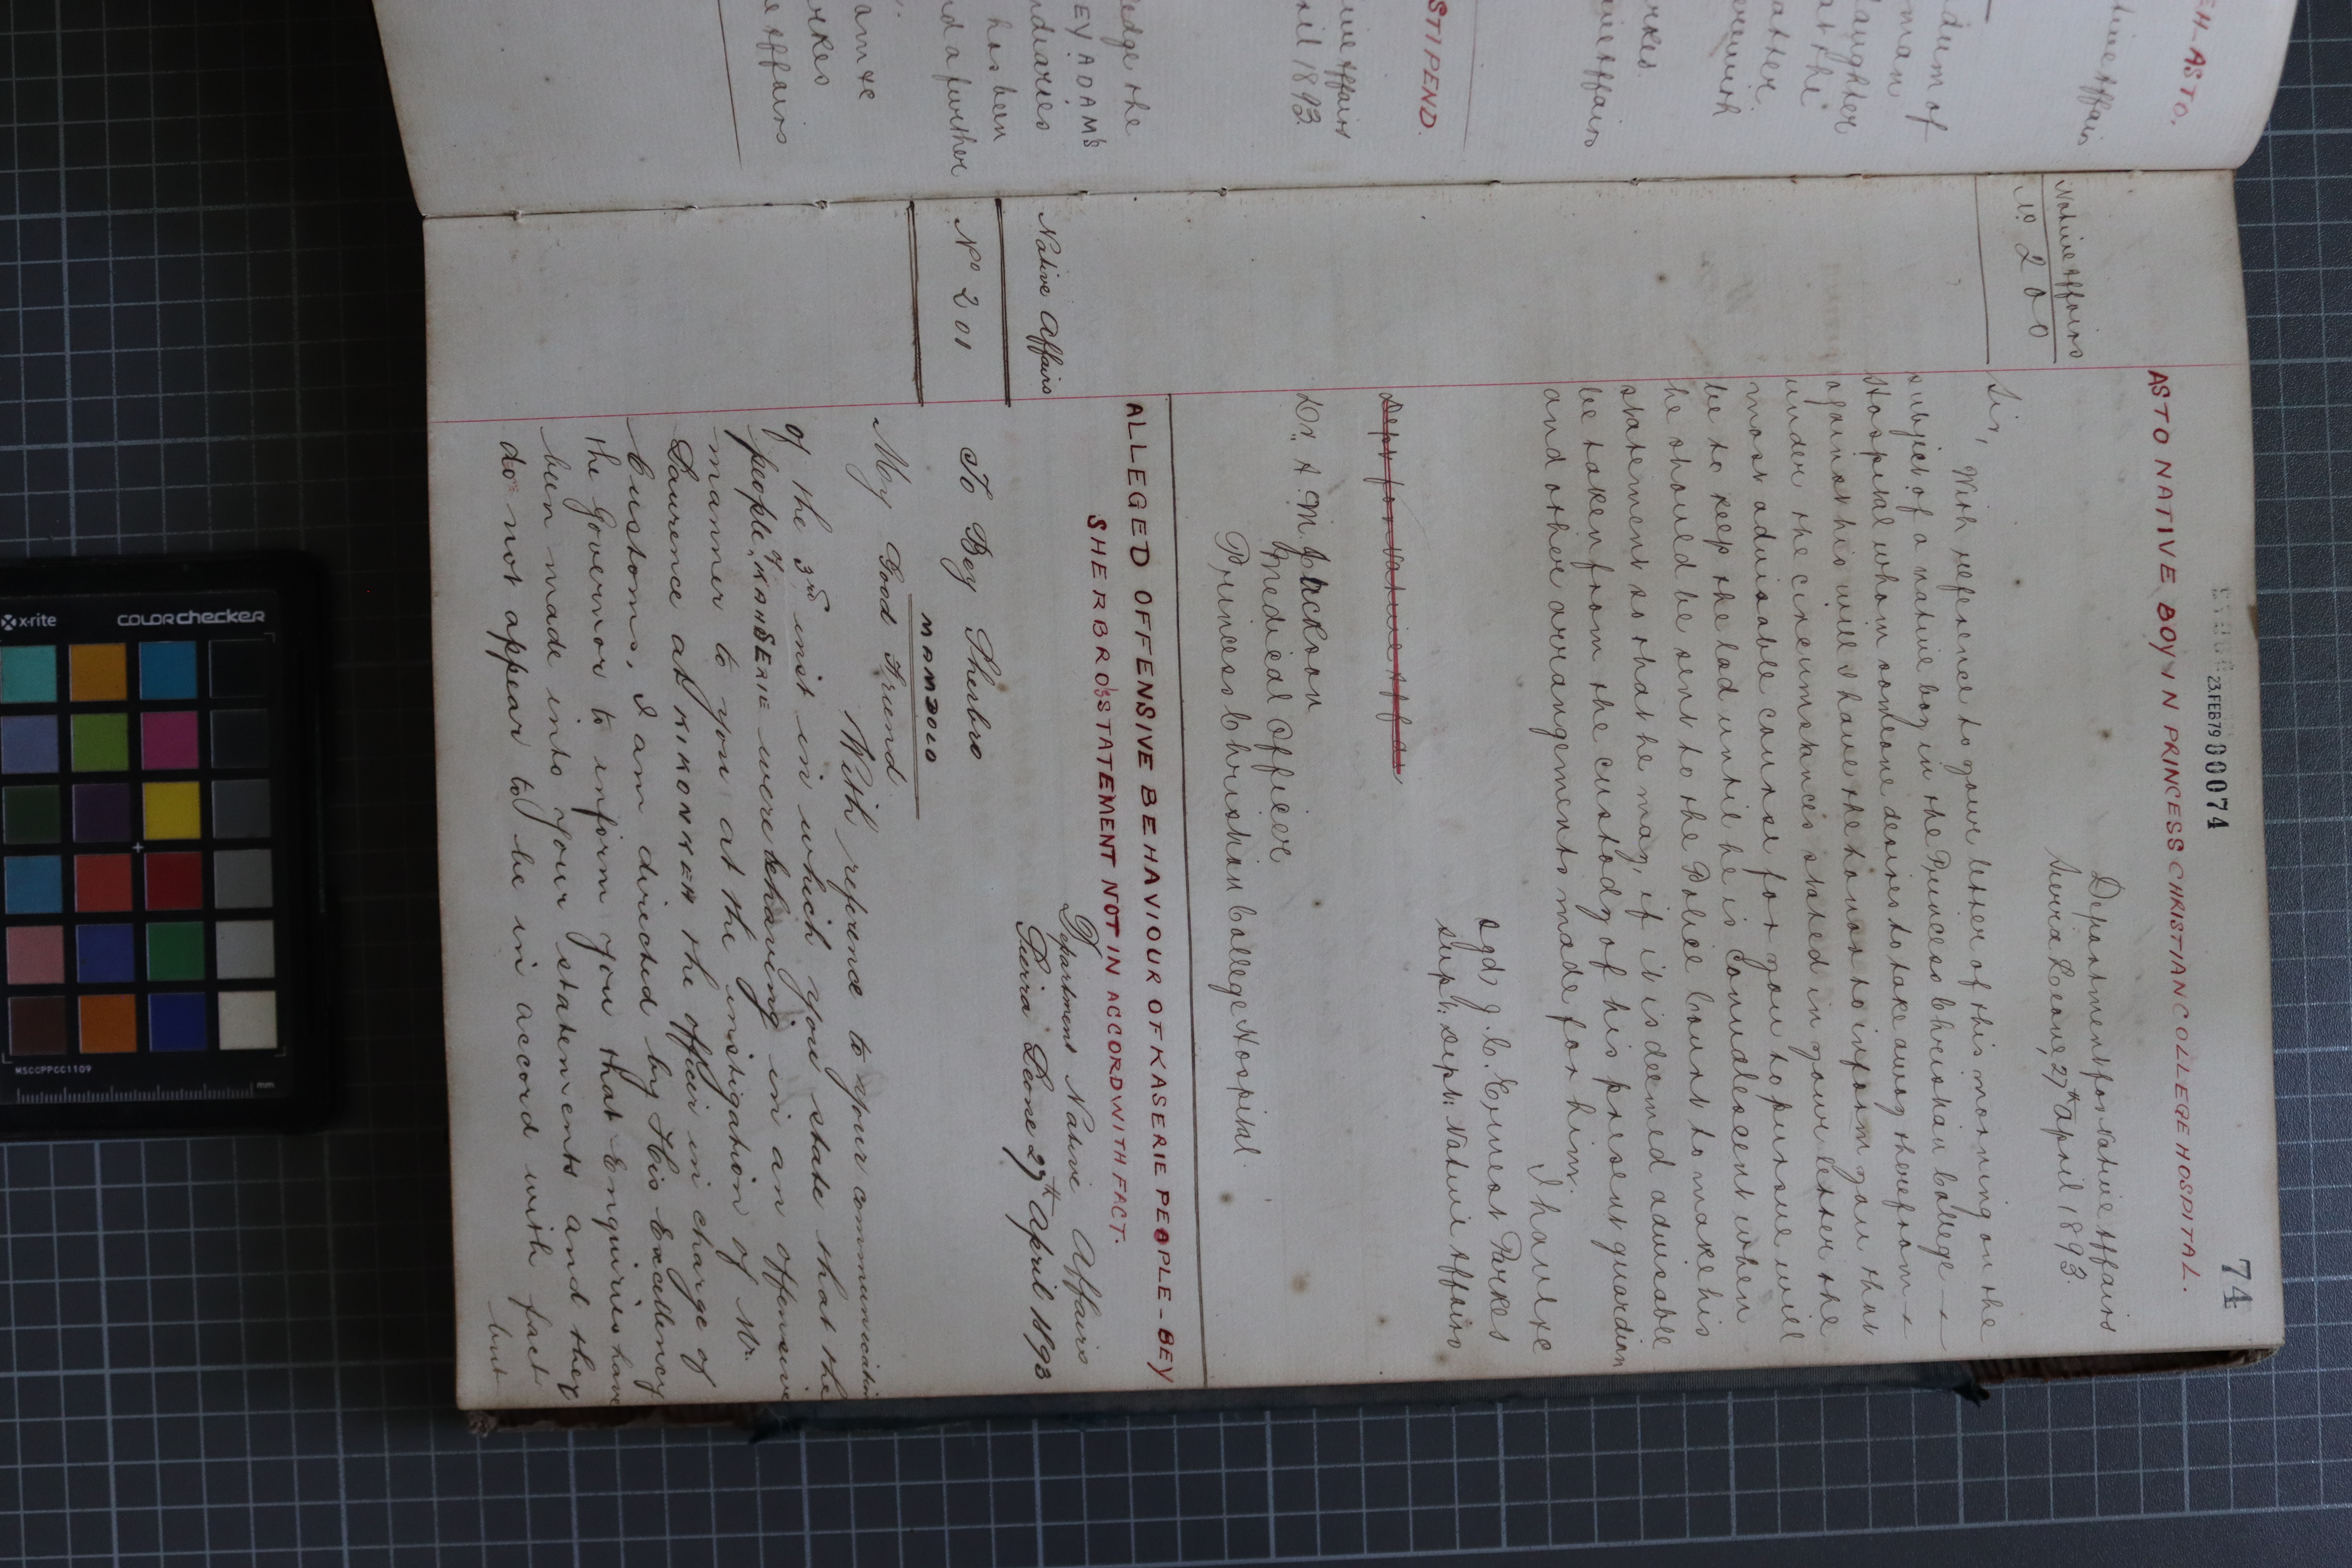 74
23.FEB79 00074
AS TO NATIVE BOY IN PRINCESS CHRISTIAN COLLEGE HOSPITAL.
Department for Native Affairs
Sierra Leone, 27th April 1893.
Native Affairs
No. 200
Sir,
With reference to your letter of this morning on the
subject of a native boy in the Princess Christian College
Hospital whom someone desires to take away therefrom
against his will I have the honour to inform you that
under the circumstances stated in your letter the
most advisable course for you to pursue will
be to keep the lad until he is Convalescent when
he should be sent to the Police Court to make his
statement so that he may, if it is deemed advisable
be taken from the custody of his present guardian
and other arrangements made for him.
I have &c
sgd J. C. Ernest Parkes
Supt: Dept: Native Affairs
Dept for Native Affai
Dr. A. M. Jackson
Medical Officer
Princess Christian College Hospital.
ALLEGED OFFENSIVE BEHAVIOUR OF KASERIE PEOPLE - BEY
SHERBRO'S STATEMENT NOT IN ACCORD WITH FACT.
Department Native Affairs
Sierra Leone 27th April 1893
Native Affairs
No 201
To Bey Sherbro
My Good Friend
With reference to your communication
of the 3rd inst in which you state that the
people of KASSERIE were behaving in an offensive
manner to you at the instigation of Mr.
Laurence at KIKONKEH the officer in charge of
Customs, I am directed by His Excellency
the Governor to inform you that Enquiries have
been made into your statements and they
do not appear to be in accord with fact
but
EH-AS TO.
tive Affairs
dum of
man
daughter
at the
ather
ernment
rkes
ive Affairs
STIPEND.
tive Affairs
ril 1893.
ledge the
EY ADAMS
ndiaries
has been
nd a further
am &c
rkes
e Affairs
x-rite
colorchecker
MSCCPPCC1109
mm